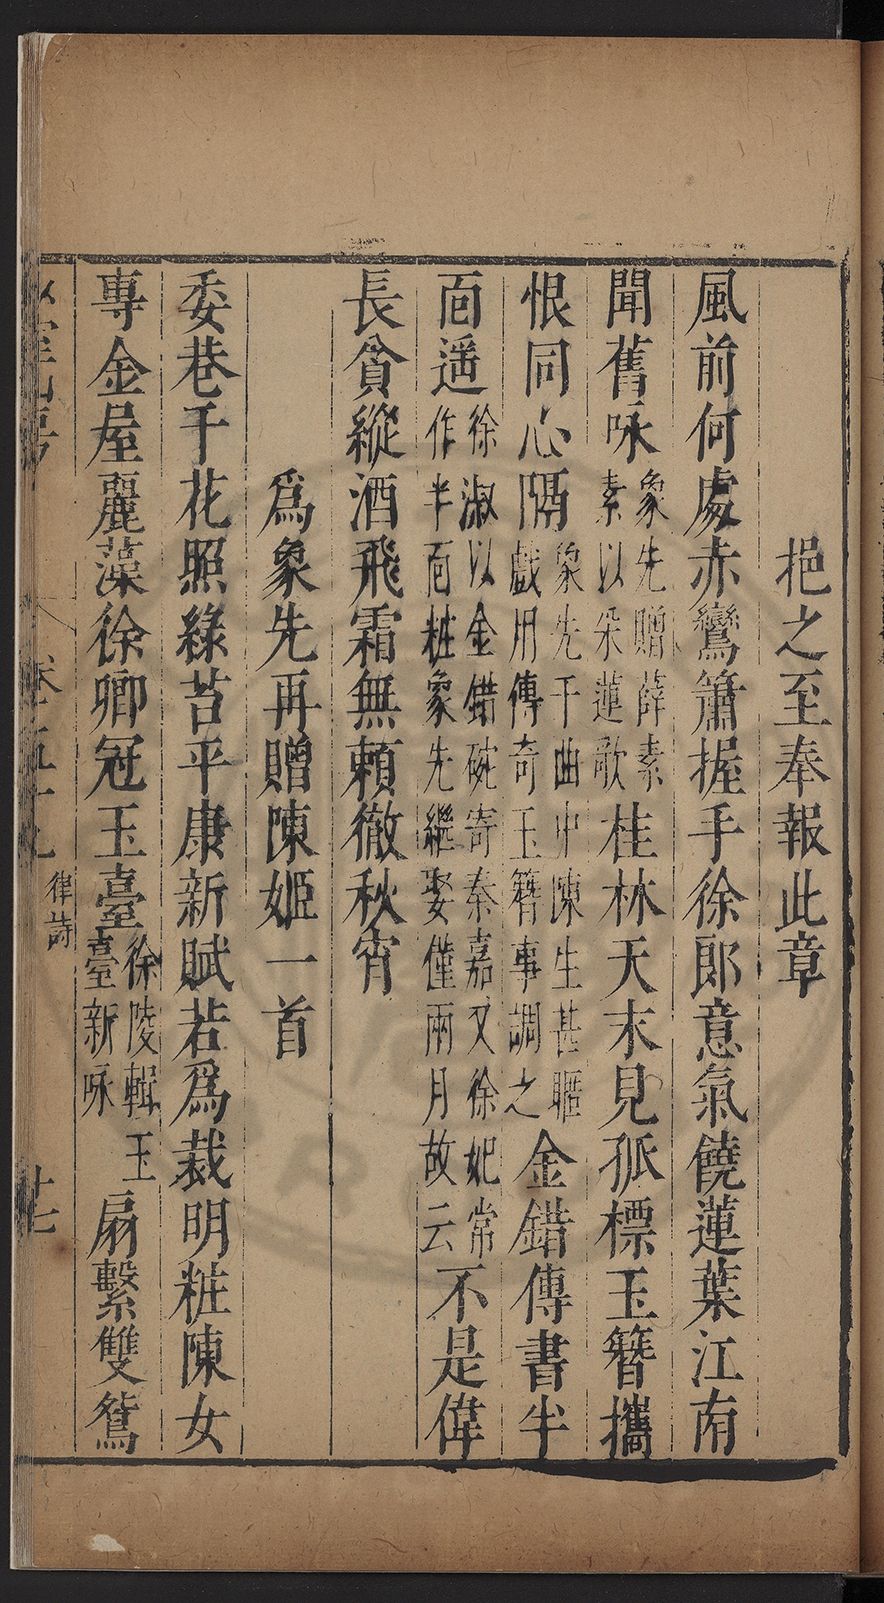 挹之至奉報此章
風前何處赤鸞簫握手徐郎意氣饒蓮葉江南
聞舊咏象先贈薛素素以朵蓮歌桂林天末見孤標玉簪攜
恨同心隔象先于曲中陳生甚暱戲用傳奇玉簪事調之金錯傳書半
面遥徐淑以金錯碗寄秦嘉又徐妃常作半面粧象先繼娶僅兩月故云不是偉
長貧縱酒飛霜無頼徹秋宵
爲象先再贈陳姬一首
委巷千花照綠苔平康新賦若爲裁明粧陳女
專金屋麗藻徐卿冠玉臺徐陵輯玉臺新咏扇繫雙鴛
卷五十九
律詩
廿七